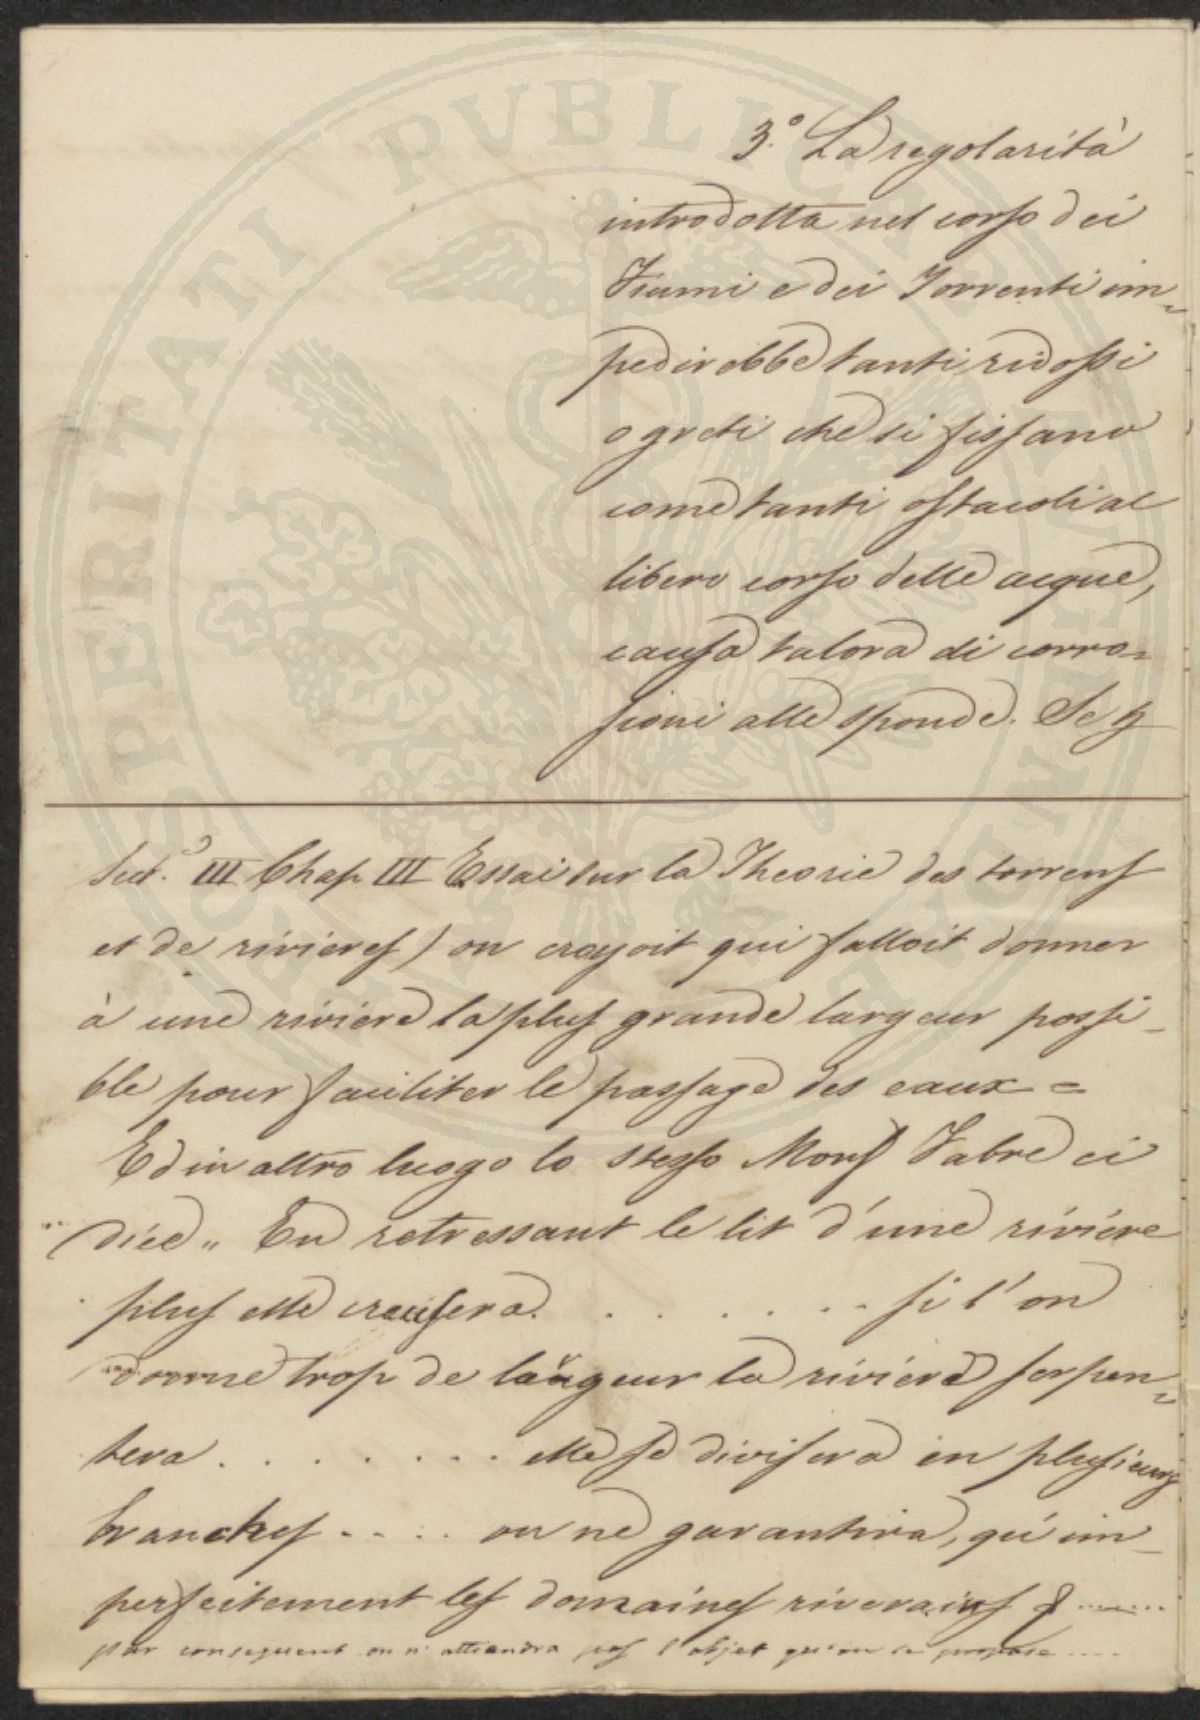 3.° La regolarità
introdotta nel corso dei
Fiumi e dei Torrenti im=
pedirebbe tanti ridossi
o greti che si fissano
come tanti ostacoli al
libero corso delle acque,
causa talora di corro=
sioni alle sponde. Se
Sect.e III Chap III Essai sur la Theorie des torrens
et de rivieres) on croyoit qui falloit donner
à une riviere la plus grande largeur possi_
ble pour faciliter le passage des eaux =
Ed in altro luogo lo stesso Mons Fabre ci
dice „ En retressant le lit d'une riviére
plus elle creusera. . . . . . . si l'on
donne trop de largeur la riviére serpen=
tera . . . . . . . . elle se divisera en plusieurs
branches - . . . on ne garantira, qu'im_
perfeitement les domaines riverains & ......
par consequent on n'attiendra pas l'objet qu'on se propose ....